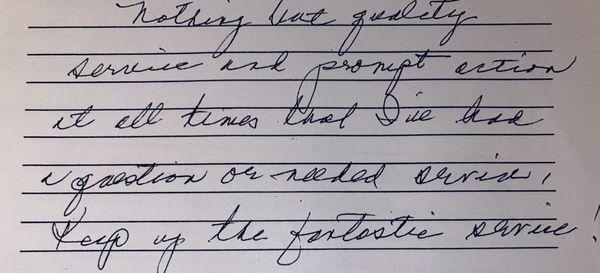 Nothing but quality
service and prompt action
at all times that I've had
a question or needed service,
Keep up the fantastic service!